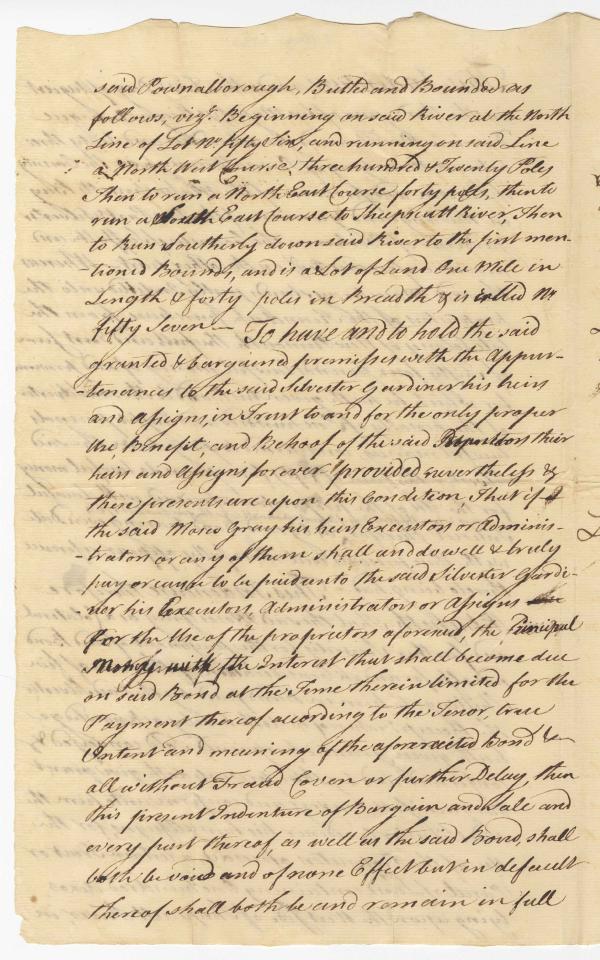 said Pownalborough, Butted and Bounded as
follows, vizt. Beginning on said River at the North
Line of Lot No. fifty Six, and running on said Line
a North West Course, three hundred & Twenty Poles
Then to run a North East Course forty poles, then to
run a South East Course to Sheepscutt River, Then
to Run Southerly down said River to the first men-
-tioned Bounds, and is a Lot of Land One Mile in
Length & forty poles in Breadth & is called No.
fifty Seven — To have and to hold the said
granted & bargained premisses with the Appur-
-tenances to the said Silvester Gardiner his heirs
and Assigns, in Trust to and for the only proper
Use, Benefit, and Behoof of the said Propriators their
heirs and Assigns forever provided nevertheless &
these presents are upon this Condition, That if
the said Moses Gray his heirs Executors or Adminis-
-trators or any of them shall and do well & truly
pay or cause to be paid unto the said Silvester Gardi-
-ner his Executors, Administrators or Assigns
for the Use of the proprietors aforesaid, the Principal
Money with the Interest that shall become due
on said Bond at the Time therein limited for the
Payment thereof according to the Tenor, true
Intent and meaning of the aforerecited bond &
all without Fraud Coven or further Delay, then
this present Indenture of Bargain and Sale and
every part thereof, as well as the said Bond, shall
both be void and of none Effect but in default
thereof shall both be and remain in full